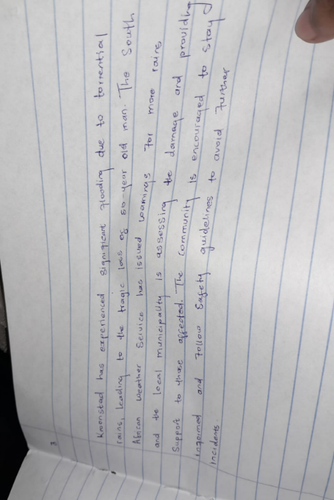 Kwanstad has experienced significant flooding due to torrential
rains, leading to the tragic loss of 50-year old man. The South
African Weather Service has issued warnings for more rains
and the local municipality is assessing the damage and providing
Support to those affected. The community is encouraged to stay
informed and follow Safety guidelines to avoid further
incidents